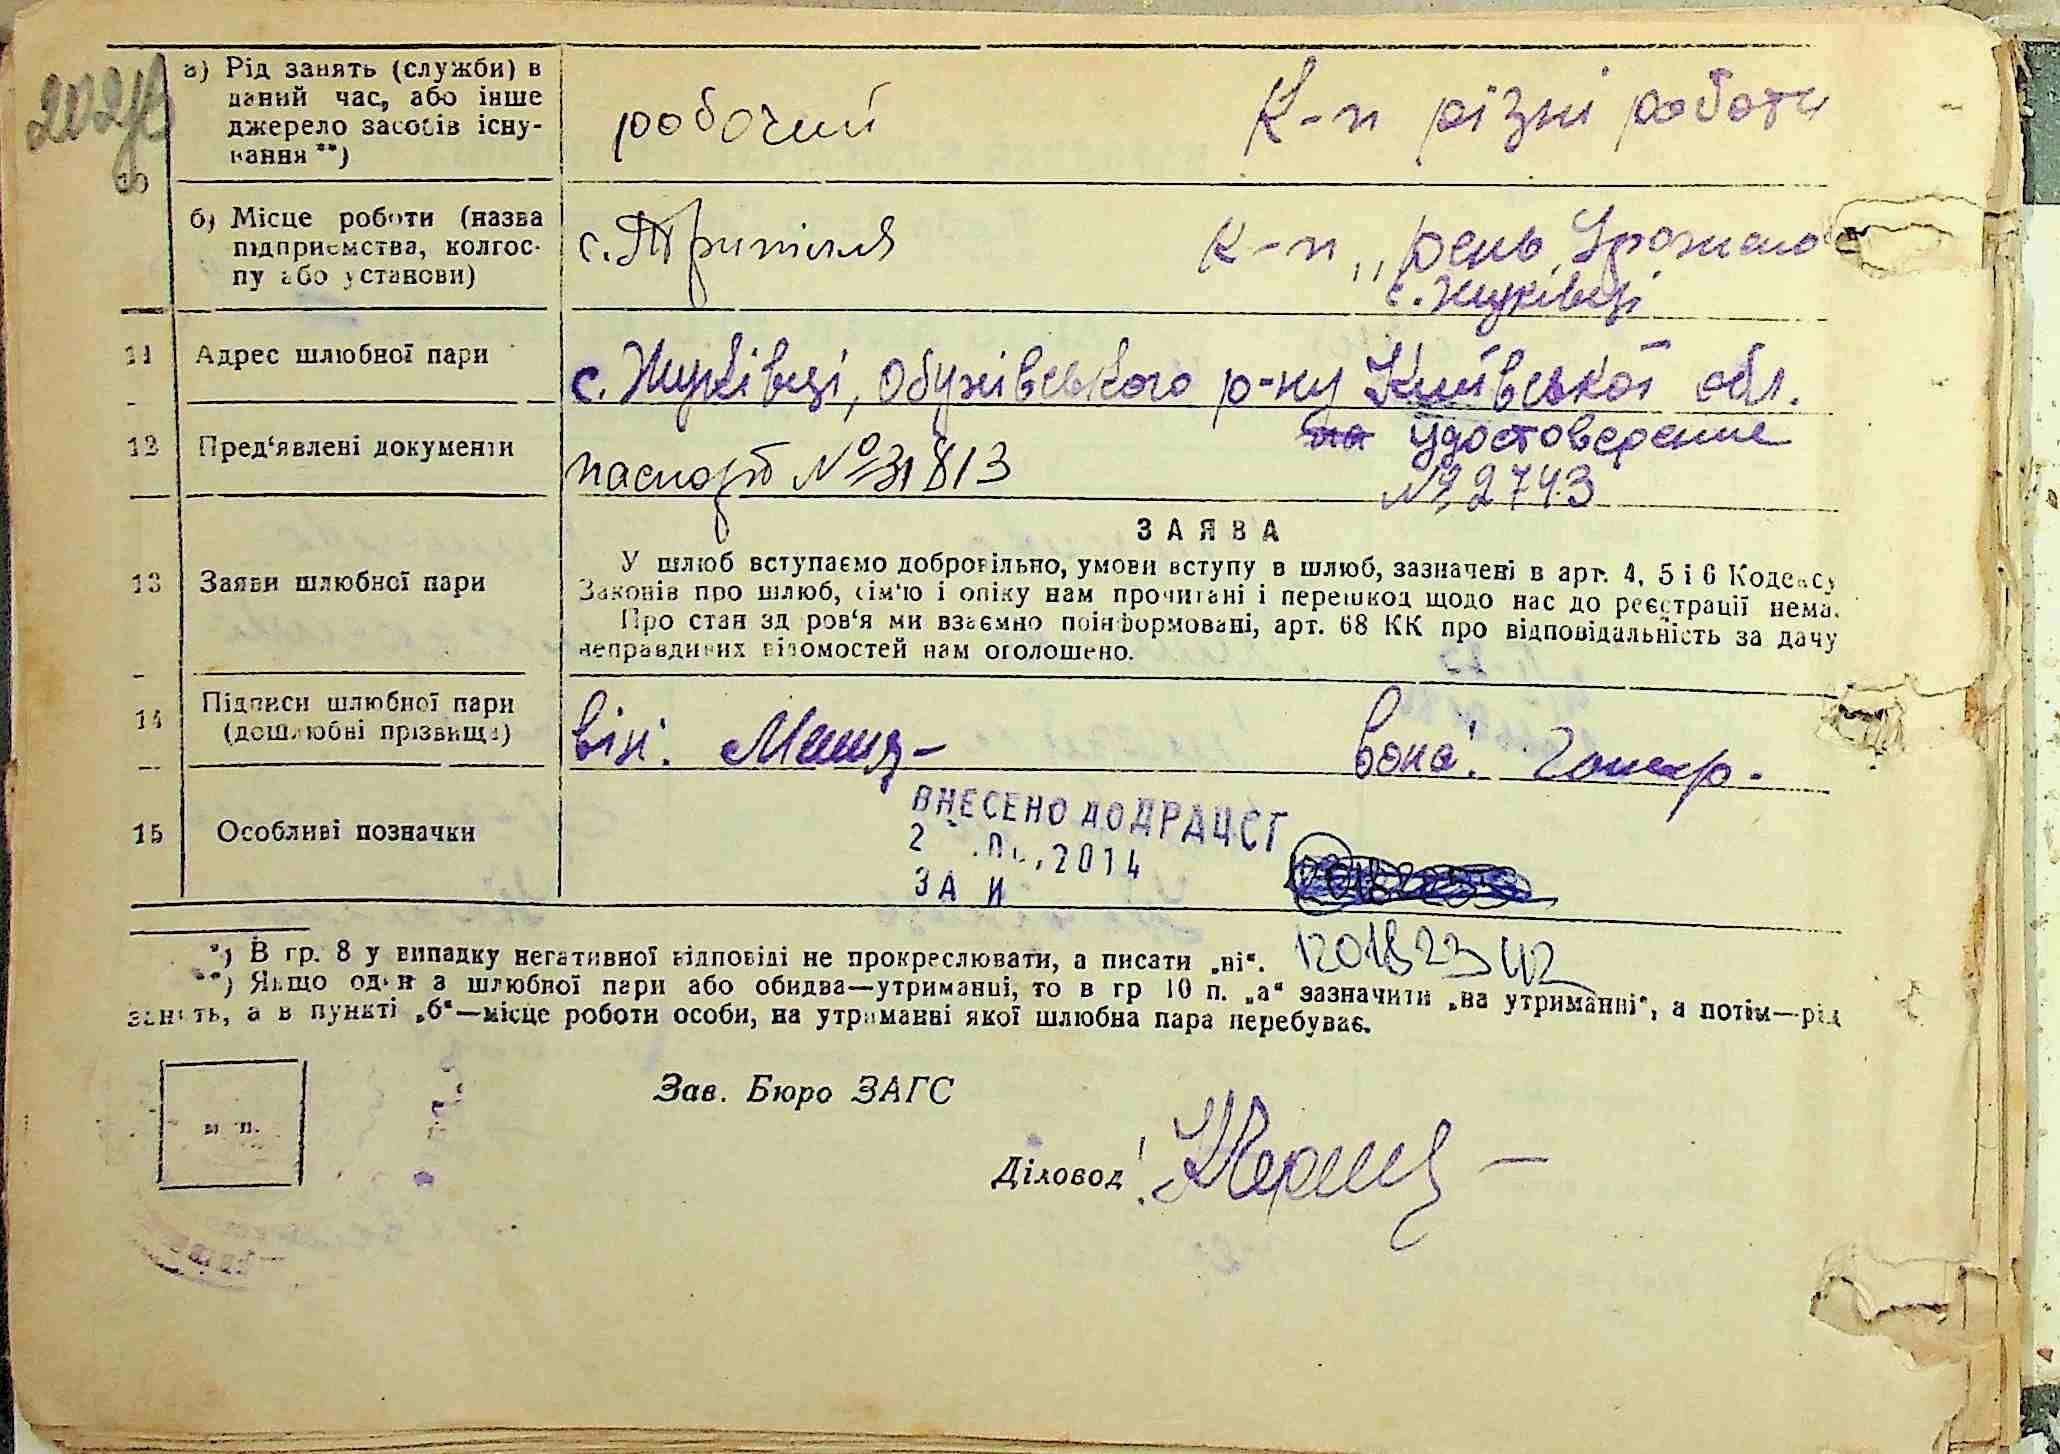 а) Рід занять (служби) в
даний час, або інше
джерело засобів існу-
вання **)
робочий К-п різні роботи
10
б) Місце роботи (назва
підприємства, колгос-
пу або установи)
с. К-п „
с. Жуківці
11 Адрес шлюбної пари
с. Жуківці, Обухівського р-ну Київської обл.
12 Пред'явлені документи
паспорт № 31813
Удостоверение
№ 2743
13 Заяви шлюбної пари
ЗАЯВА
У шлюб вступаємо добровільно, умови вступу в шлюб, зазначені в арт. 4, 5 і 6 Кодексу
Законів про шлюб, сім'ю і опіку нам прочитані і перешкод щодо нас до реєстрації нема.
Про стан здоров'я ми взаємно поінформовані, арт. 68 КК про відповідальність за дачу
неправдивих відомостей нам оголошено.
14 Підписи шлюбної пари
(дошлюбні прізвища)
він: вона:
15 Особливі позначки
ВНЕСЕНО ДО ДРАЦСГ
2 2014
ЗА И
*) В гр. 8 у випадку негативної відповіді не прокреслювати, а писати „ні“.
120182342
**) Якщо один з шлюбної пари або обидва—утриманці, то в гр 10 п. „а“ зазначити „на утриманні“, а потім—рід
занять, а в пункті „б“—місце роботи особи, на утриманні якої шлюбна пара перебуває.
м. п.
Зав. Бюро ЗАГС
Діловод